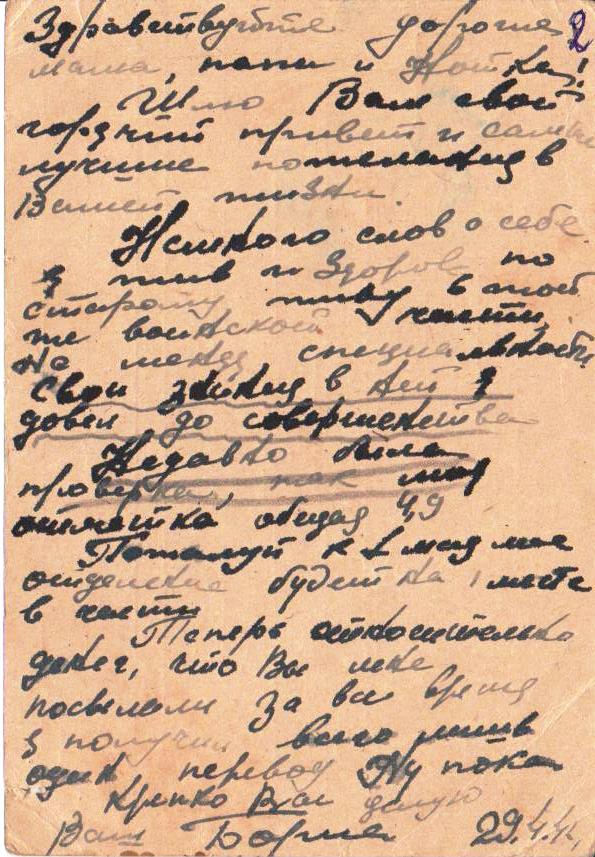 Здравствуйте дорогие 2
мама, папа и Нотка!
Шлю Вам свой
горячий привет и самые
лучшие пожелания в
Вашей жизни.
Немного слов о себе
я жив и здоров по
старому живу в той
же воинской части,
на межд специальности
Свои знания в ней я
довел до совершенства
Недавно была
проверка, так моя
отметка общая 4,9
Пожалуй к 1 мая мое
отделение будет на 1 месте
в части
Теперь относительно
денег, что Вы мне
посылали За все время
я получил всего лишь
один перевод Ну пока
Крепко Вас целую
Ваш Боря 29.4.42